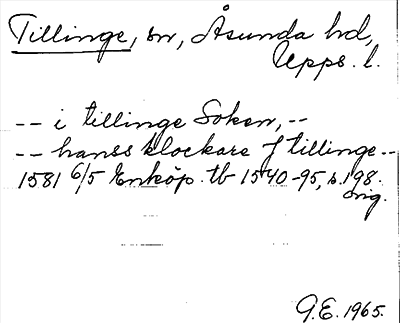 Tillinge, sn, Åsunda hd,
Upps. l.
-- i tillinge Soken, --
-- hanss klockare J tillinge --
1581 6/5 Enköp. tb 1540-95, s. 198.
orig.
G.E. 1965.